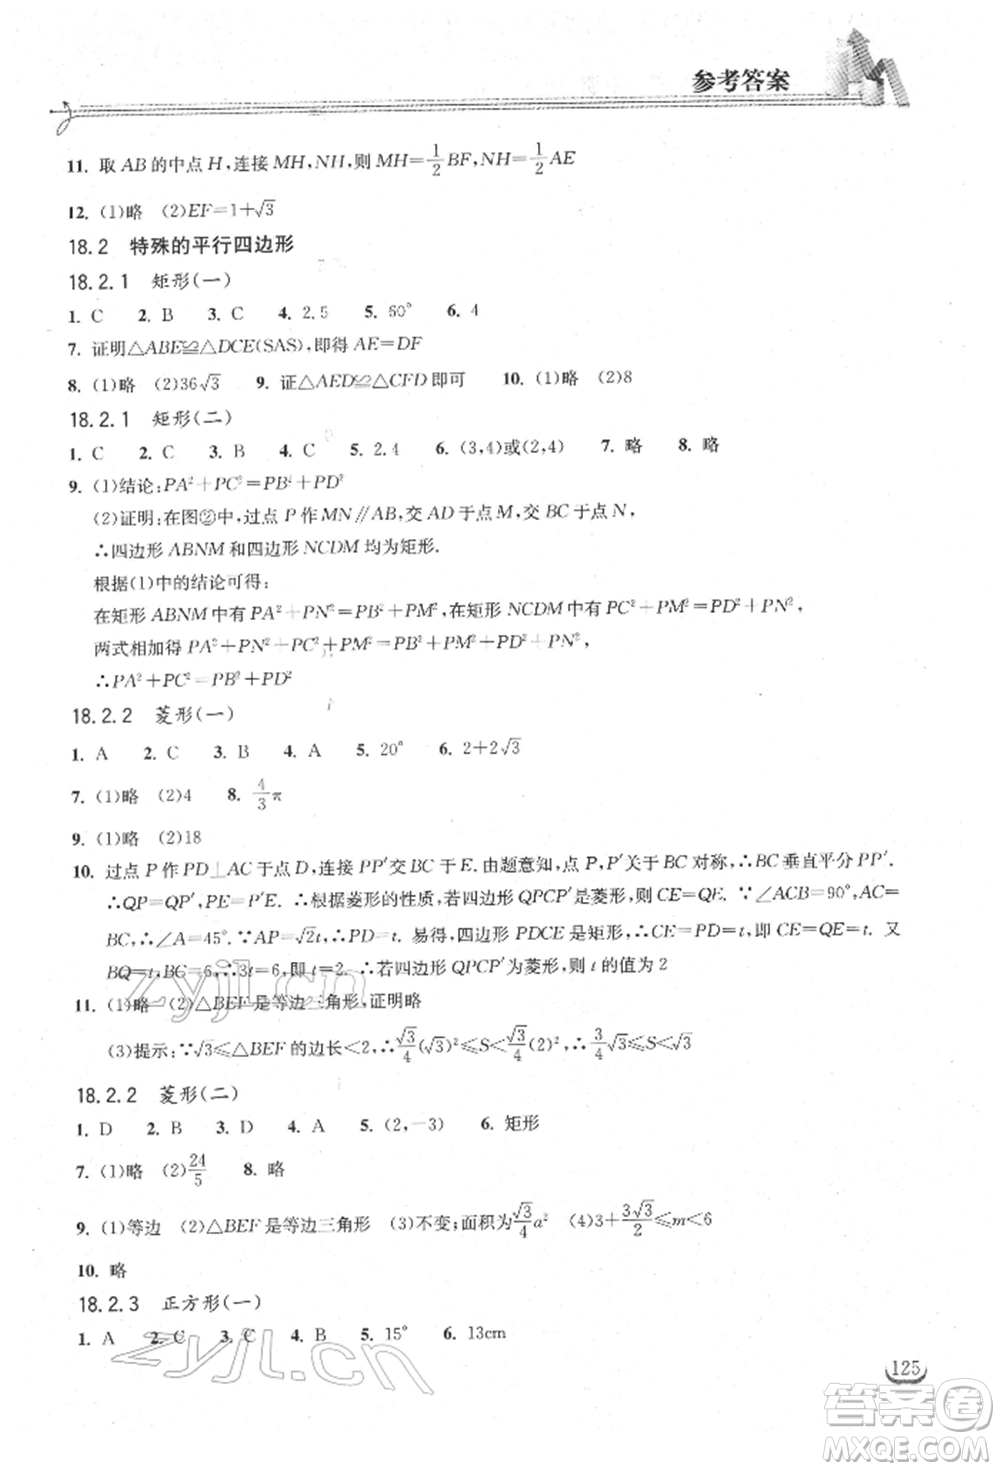 参考答案
11. 取 AB 的中点 H,连接 MH,NH,则 MH=1/2 BF,NH=1/2 AE
12. (1)略 (2)EF=1+√3
18.2 特殊的平行四边形
18.2.1 矩形(一)
1. C 2. B 3. C 4. 2.5 5. 60° 6. 4
7. 证明△ABE≌△DCE(SAS),即得 AE=DF
8. (1)略 (2)36√3 9. 证△AED≌△CFD 即可 10. (1)略 (2)8
18.2.1 矩形(二)
1. C 2. C 3. B 4. C 5. 2.4 6. (3,4)或(2,4) 7. 略 8. 略
9. (1)结论:PA²+PC²=PB²+PD²
(2)证明:在图②中,过点 P 作 MN∥AB,交 AD 于点 M,交 BC 于点 N,
∴四边形 ABNM 和四边形 NCDM 均为矩形.
根据(1)中的结论可得:
在矩形 ABNM 中有 PA²+PN²=PB²+PM²,在矩形 NCDM 中有 PC²+PM²=PD²+PN²,
两式相加得 PA²+PN²+PC²+PM²=PB²+PM²+PD²+PN²,
∴PA²+PC²=PB²+PD²
18.2.2 菱形(一)
1. A 2. C 3. B 4. A 5. 20° 6. 2+2√3
7. (1)略 (2)4 8. 4/3 π
9. (1)略 (2)18
10. 过点 P 作 PD⊥AC 于点 D,连接 PP′交 BC 于 E.由题意知,点 P,P′关于 BC 对称,∴BC 垂直平分 PP′.
∴QP=QP′,PE=P′E.∴根据菱形的性质,若四边形 QPCP′是菱形,则 CE=QE.∵∠ACB=90°,AC=
BC,∴∠A=45°.∵AP=√2t,∴PD=t. 易得,四边形 PDCE 是矩形,∴CE=PD=t,即 CE=QE=t. 又
BQ=t,BC=6,∴3t=6,即 t=2. ∴若四边形 QPCP′为菱形,则 t 的值为 2
11. (1)略 (2)△BEF 是等边三角形,证明略
(3)提示:∵√3≤△BEF 的边长<2,∴√3/4(√3)²≤S<√3/4(2)²,∴3/4√3≤S<√3
18.2.2 菱形(二)
1. D 2. B 3. D 4. A 5. (2,-3) 6. 矩形
7. (1)略 (2)24/5 8. 略
9. (1)等边 (2)△BEF 是等边三角形 (3)不变;面积为√3/4 a² (4)3+3√3/2≤m<6
10. 略
18.2.3 正方形(一)
1. A 2. C 3. C 4. B 5. 15° 6. 13cm
125
zyjl.cn
zyjl.cn
答案圈
MXQE.COM